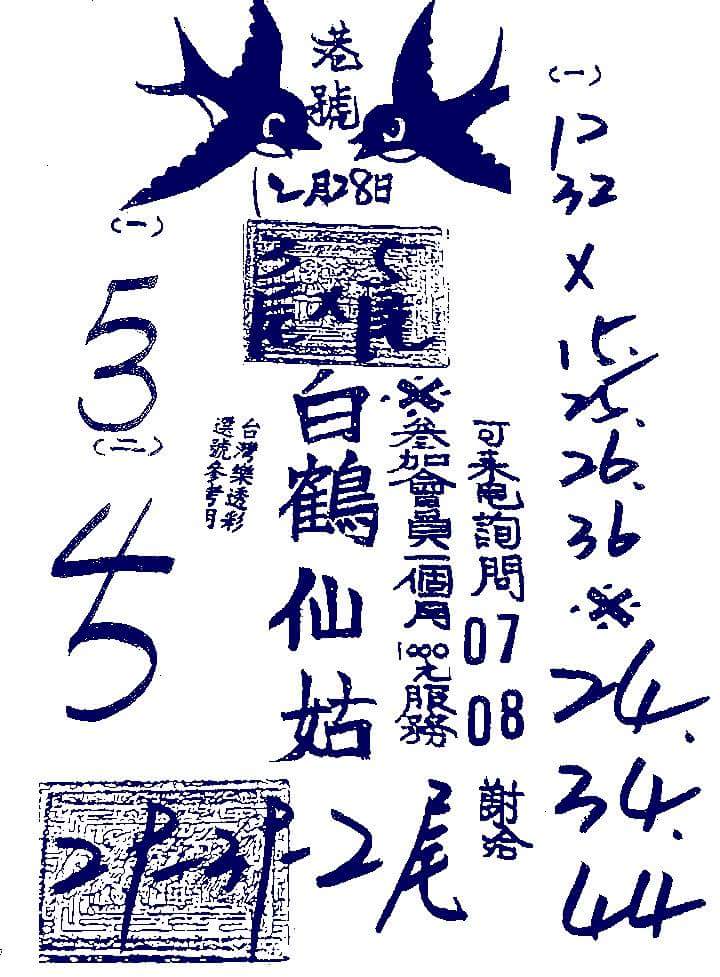 港號
12月28日
(一)
53
(二)
45
3尾X5尾
台灣樂透彩
選號參考用
白鶴仙姑
※參加會員一個月1000元服務
可来电詢問
07
08
謝洽
(一)
12
32
X
15.
25.
26.
36
※
24.
34.
44
2尾